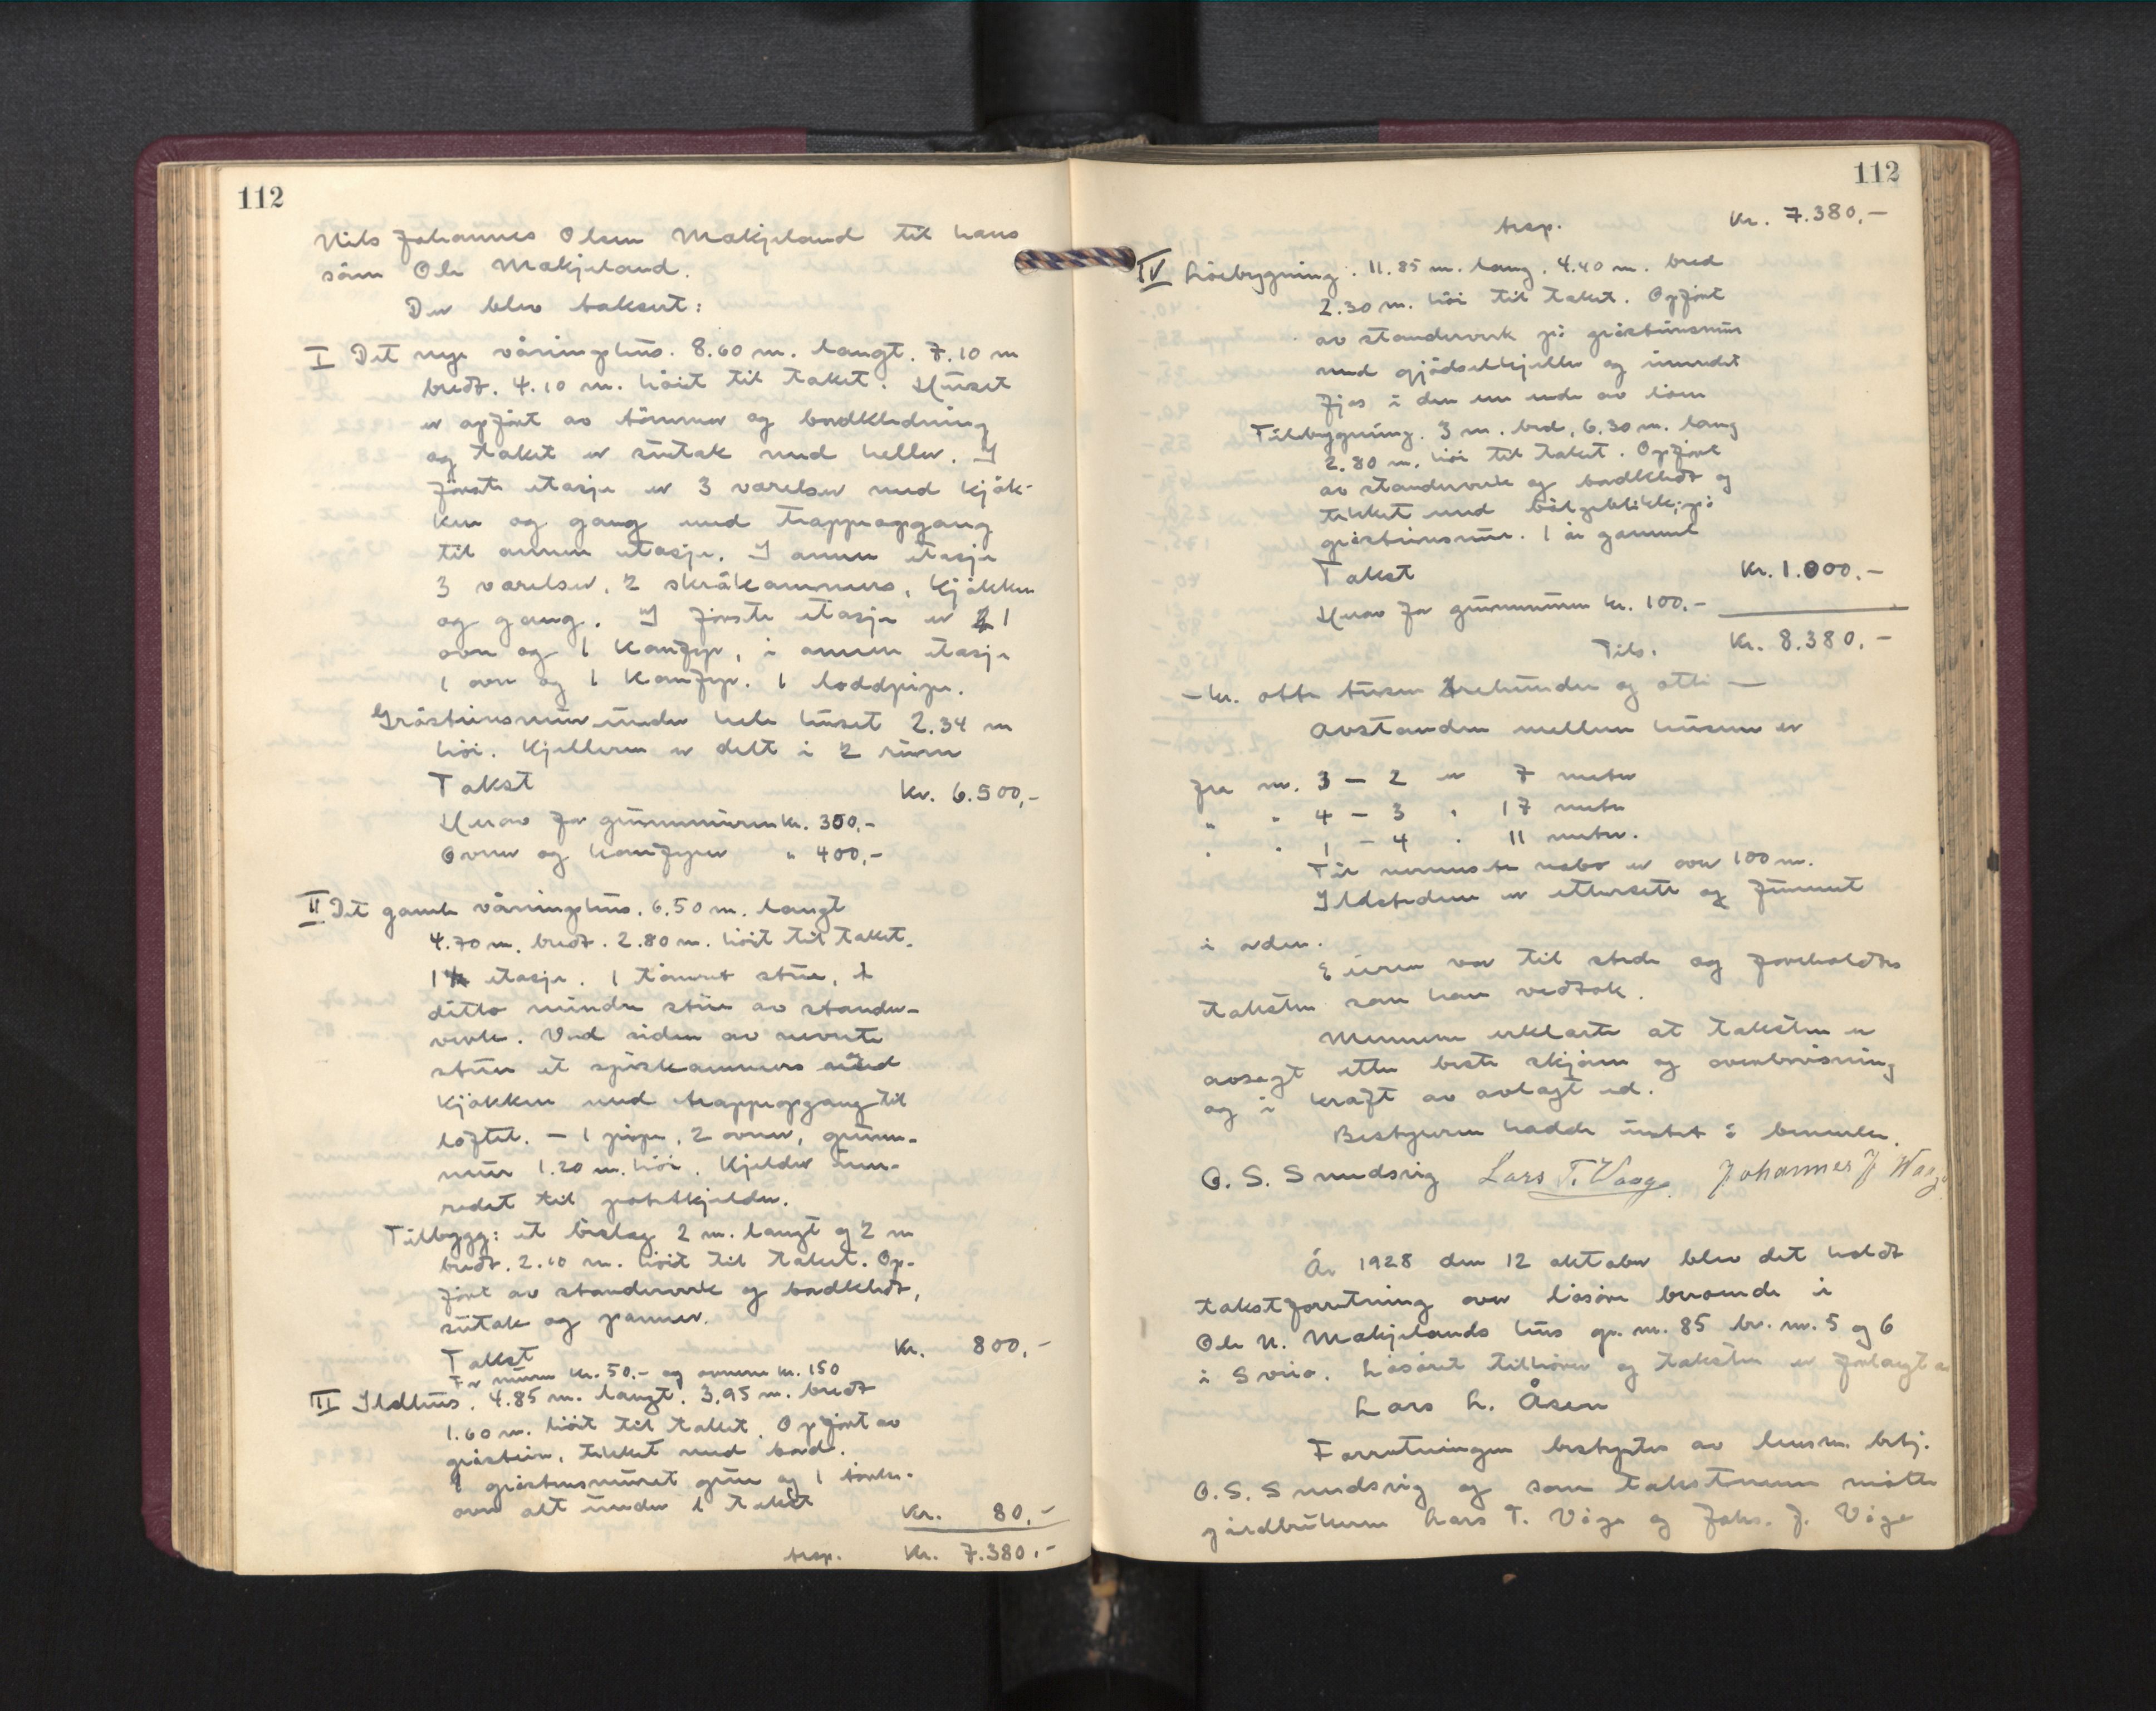 112
Nils Johannes Olsen Mækjeland til hans
sönn Ole Mækjeland.
Der blev taksert:
I Det nye våningshus. 8.60 m. langt. 7.10 m
bredt. 4.10 m. höit til taket. Huset
er opfört av tömmer og bordkledning
og taket er sutak med heller. I
förste etasje er 3 værelser med kjök-
ken og gang med trappeopgang
til annen etasje. I annen etasje
3 værelser, 2 skråkammers, kjökken
og gang. I förste etasje er 1
ovn og 1 komfyr, i annen etasje
1 ovn og 1 komfyr. 1 loddpipe.
Gråstensmur under hele huset 2.34 m
höi. Kjelleren er delt i 2 rum
Takst Kr. 6.500,-
Herav for grunnmuren kr. 300,-
Ovner og komfyrer " 400,-
II Det gamle våningshus. 6.50 m. langt
4.70 m. bredt. 2.80 m. höit til taket.
1 1/2 etasje. 1 tömret stue, 1
ditto mindre stue av stender-
verk. Ved siden av nevnte
stuer et spiskammers med
kjökken med trappeopgang til
loftet. — 1 pipe, 2 ovner, grunn-
mur 1.20 m. höi. Kjelder inn-
redet til potetkjelder.
Tilbygg: et bislag 2 m. langt og 2 m
bredt. 2.10 m. höit til taket. Op-
fört av stenderverk og bordkledt,
sutak og panner.
Takst Kr. 800,-
For muren kr. 50.- og ovnene kr. 150
III Ildhus. 4.85 m. langt. 3.95 m. bredt
1.60 m. höit til taket. Opfört av
gråstein, tekket med bord.
1 gråstensmuret grue og 1 törke-
ovn alt under 1 takst
Kr. 80,-
trsp. Kr. 7.380,-
112
trsp. Kr. 7.380,-
IV Löebygning. 11.85 m. lang. 4.40 m. bred
2.30 m. höi til taket. Opfört
av stenderverk på gråstensmur
med gjödselkjeller og innredet
fjøs i den ene ende av löen
Tilbygning. 3 m. bred, 6.30 m. lang
2.80 m. höi til taket. Opfört
av stenderverk og bordkledt og
tekket med bölgeblikk, på
gråstensmur. 1 år gammel
Takst Kr. 1.000,-
Herav for grunnmuren kr. 100,-
Tils. Kr. 8.380,-
- kr. otte tusen trehundre og otti —
Avstanden mellem husene er
fra nr. 3 — 2 er 7 meter
" " 4 — 3 " 17 meter
" " 1 — 4 " 11 meter.
Til nærmeste nabo er over 100 m.
Ildstedene er eftersett og funnet
i orden.
Eieren var til stede og foreholdtes
taksten som han vedtok.
Mennene erklærte at taksten er
avsagt etter beste skjönn og overbevisning
og i kraft av avlagt ed.
Bestyreren hadde intet å bemerke.
O. S. Smedsvig Lars T. Vaage. Johannes J. Waage
År 1928 den 12 oktober blev det holdt
takstforretning over lösöre beroende i
Ole N. Mækjelands hus gr. nr. 85 br. nr. 5 og 6
i Sveio. Lösöret tilhörer og taksten er forlangt av
Lars L. Åsen
Forretningen bestyrtes av lensm. betj.
O. S. Smedsvig og som takstmenn mötte
gårdbrukerne Lars T. Våge og Johs. J. Våge